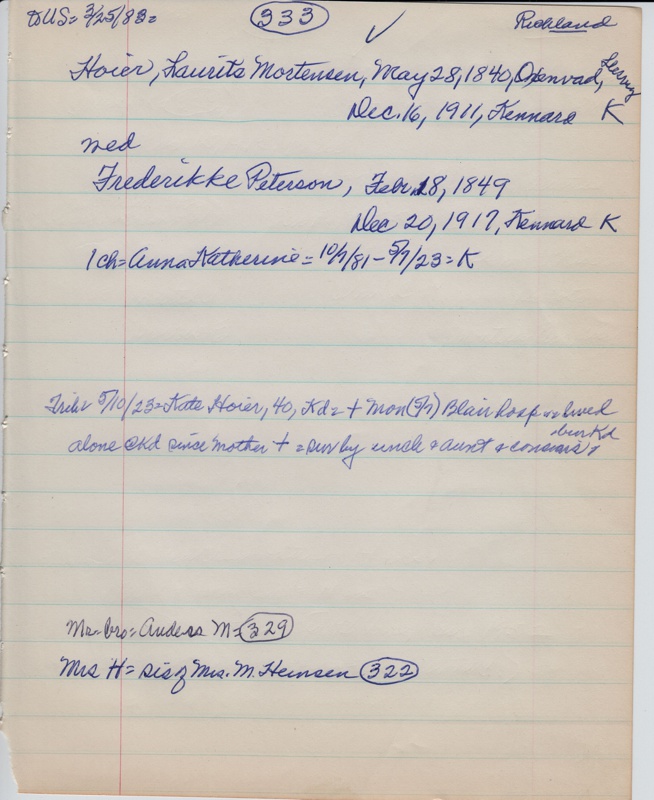 DUS= 3/25/83= 333 ✓ Richland
Hoier, Laurits Mortensen, May 28, 1840, Oxenvad,
Dec. 16, 1911, Kennard K
med
Frederikke Peterson, Febr 18, 1849
Dec 20, 1917, Kennard K
1 ch= Anna Katherine= 10/7/81-5/7/23= K
Trib= 5/10/23= Kate Hoier, 40, Kd= + Mon (5/7) Blair hosp = lived
bur Kd
alone @ Kd since mother + = surv by uncle & aunt & cousins
Mr= bro= Anders M= 329
Mrs H= sis of Mrs. M. Heinsen 322